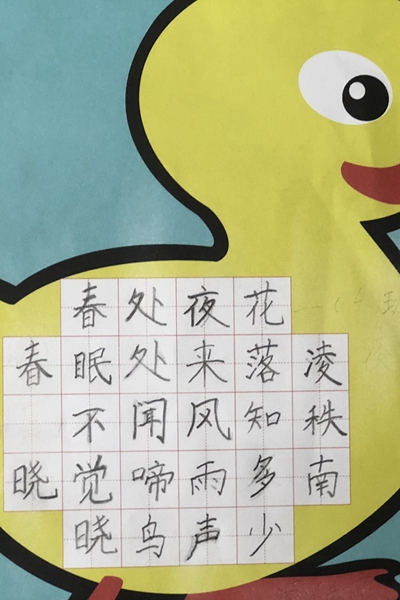 春晓
春眠不觉晓
处处闻啼鸟
夜来风雨声
花落知多少
凌秩南